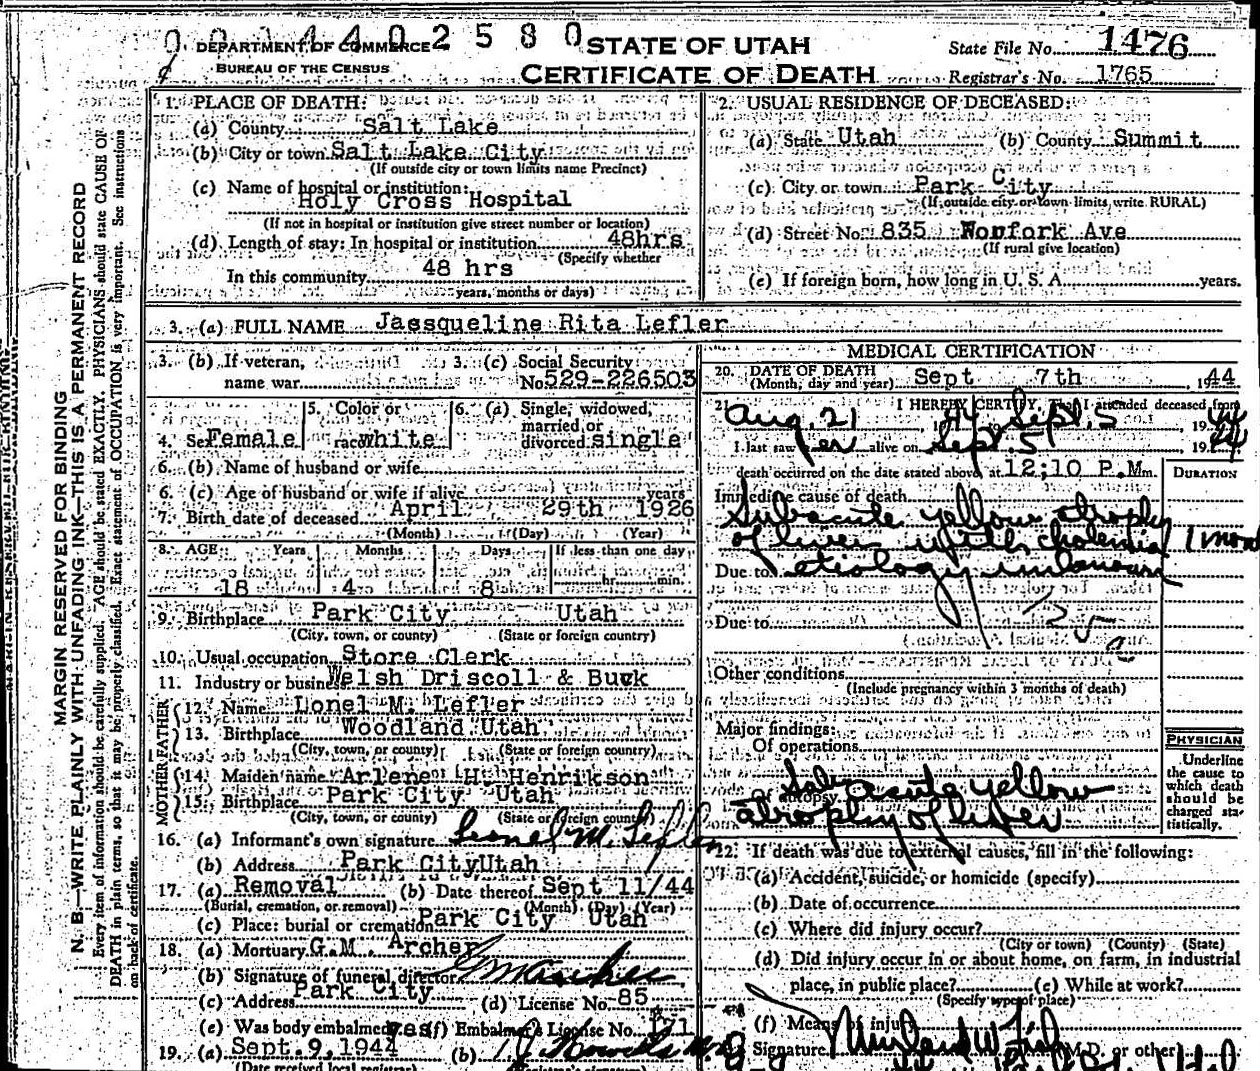 0 0 4 4 0 2 5 8 0
DEPARTMENT OF COMMERCE
BUREAU OF THE CENSUS
STATE OF UTAH
CERTIFICATE OF DEATH
State File No. 1476
Registrar's No. 1765
MARGIN RESERVED FOR BINDING
N. B.—WRITE PLAINLY WITH UNFADING INK—THIS IS A PERMANENT RECORD
Every item of information should be carefully supplied. AGE should be stated EXACTLY. PHYSICIANS should state CAUSE OF
DEATH in plain terms, so that it may be properly classified. Exact statement of OCCUPATION is very important. See instructions
on back of certificate.
1. PLACE OF DEATH:
(a) County Salt Lake
(b) City or town Salt Lake City
(If outside city or town limits name Precinct)
(c) Name of hospital or institution:
Holy Cross Hospital
(If not in hospital or institution give street number or location)
(d) Length of stay: In hospital or institution 48hrs
(Specify whether
In this community 48 hrs
years, months or days)
2. USUAL RESIDENCE OF DECEASED:
(a) State Utah (b) County Summit
(c) City or town Park City
(If outside city or town limits, write RURAL)
(d) Street No. 835 Norfork Ave
(If rural give location)
(e) If foreign born, how long in U. S. A. years.
3. (a) FULL NAME Jacsqueline Rita Lefler
3. (b) If veteran, name war
3. (c) Social Security No. 529-226503
4. Sex Female
5. Color or race white
6. (a) Single, widowed, married, or divorced single
6. (b) Name of husband or wife
6. (c) Age of husband or wife if alive years
7. Birth date of deceased April 29th 1926
(Month) (Day) (Year)
8. AGE: Years Months Days If less than one day
18 4 8 hr. min.
9. Birthplace Park City Utah
(City, town, or county) (State or foreign country)
10. Usual occupation Store Clerk
11. Industry or business Welsh Driscoll & Buck
FATHER
12. Name Lionel M. Lefler
13. Birthplace Woodland Utah
(City, town, or county) (State or foreign country)
MOTHER
14. Maiden name Arlene H. Henrikson
15. Birthplace Park City Utah
(City, town, or county) (State or foreign country)
16. (a) Informant's own signature Lionel M. Lefler
(b) Address Park City Utah
17. (a) Removal (b) Date thereof Sept 11/44
(Burial, cremation, or removal) (Month) (Day) (Year)
(c) Place: burial or cremation Park City Utah
18. (a) Mortuary G.M. Archer
(b) Signature of funeral director GM Archer
(c) Address Park City (d) License No. 85
(e) Was body embalmed yes (f) Embalmer's License No. 171
19. (a) Sept. 9, 1944 (b)
(Date received local registrar)
MEDICAL CERTIFICATION
20. DATE OF DEATH
(Month, day and year) Sept 7th, 1944
21. I HEREBY CERTIFY, That I attended deceased from
Aug. 21, 1944 Sept. 5 1944
I last saw er alive on Sept. 5 1944
death occurred on the date stated above, at 12;10 P.M m.
DURATION
Immediate cause of death
Subacute yellow atrophy
of liver with cholemia 1 mon
Due to etiology unknown
Due to
125a
Other conditions
(Include pregnancy within 3 months of death)
Major findings:
Of operations
Of autopsy Subacute yellow
atrophy of liver
PHYSICIAN
Underline
the cause to
which death
should be
charged sta-
tistically.
22. If death was due to external causes, fill in the following:
(a) Accident, suicide, or homicide (specify)
(b) Date of occurrence
(c) Where did injury occur?
(City or town) (County) (State)
(d) Did injury occur in or about home, on farm, in industrial
place, in public place? (e) While at work?
(Specify type of place)
(f) Means of injury
Signature M.D. or other